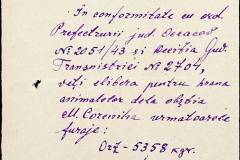 In conformitate cu ord.
Prefecturii jud. Oceacov
№ 2051/43 și Decizia Guv.
Transnistriei № 2701,
veți elibera pentru hrana
animalelor dela obștia
M. Corenitia urmatoarele
furaje:
Orz - 5358 kgr.